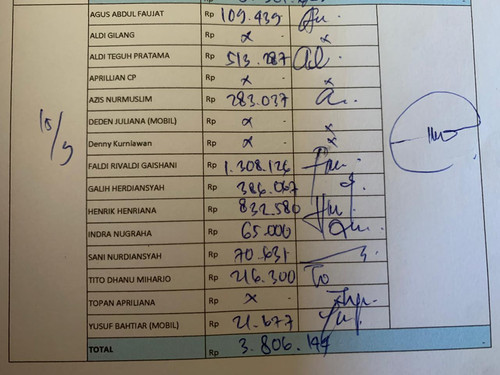 AGUS ABDUL FAUJAT Rp 109.439
ALDI GILANG Rp x - x
ALDI TEGUH PRATAMA Rp 513.287
APRILLIAN CP Rp x - x
AZIS NURMUSLIM Rp 283.037
DEDEN JULIANA (MOBIL) Rp x - x
Denny Kurniawan Rp x - x
FALDI RIVALDI GAISHANI Rp 1.308.126
GALIH HERDIANSYAH Rp 386.067
HENRIK HENRIANA Rp 832.580
INDRA NUGRAHA Rp 65.000
SANI NURDIANSYAH Rp 70.631
TITO DHANU MIHARJO Rp 216.300 To
TOPAN APRILIANA Rp x -
YUSUF BAHTIAR (MOBIL) Rp 21.677
TOTAL Rp 3.806.144